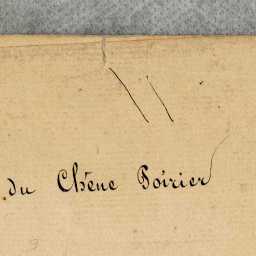 du Chêne Poirier